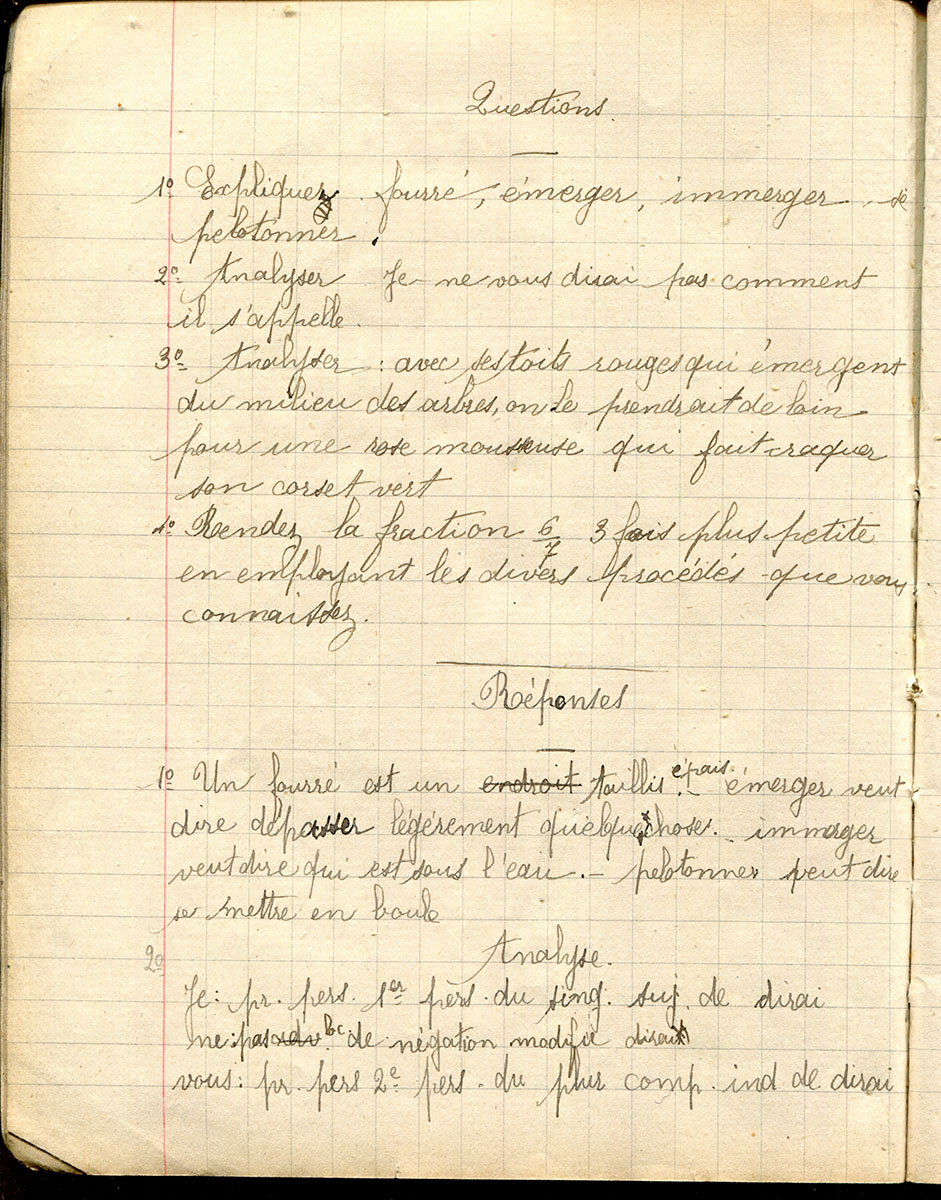 Questions.
1º Expliquer fourré, émerger, immerger se
pelotonner.
2º Analyser Je ne vous dirai pas comment
il s'appelle.
3º Analyser : avec ses toits rouges qui émergent
du milieu des arbres, on le prendrait de loin
pour une rose mousseuse qui fait craquer
son corset vert
4º Rendez la fraction 6/7 3 fois plus petite
en employant les divers procédés que vous
connaissez.
Réponses
1º Un fourré est un endroit taillis épais. - émerger veut
dire dépasser légérement quelque chose. immerger
veut dire qui est sous l'eau. - pelotonner veut dire
se mettre en boule
2º Analyse.
Je : pr. pers. 1er pers. du sing. suj. de dirai
ne : pas adv loc de négation modifie dirai
vous : pr. pers 2e pers. du plur comp. ind. de dirai